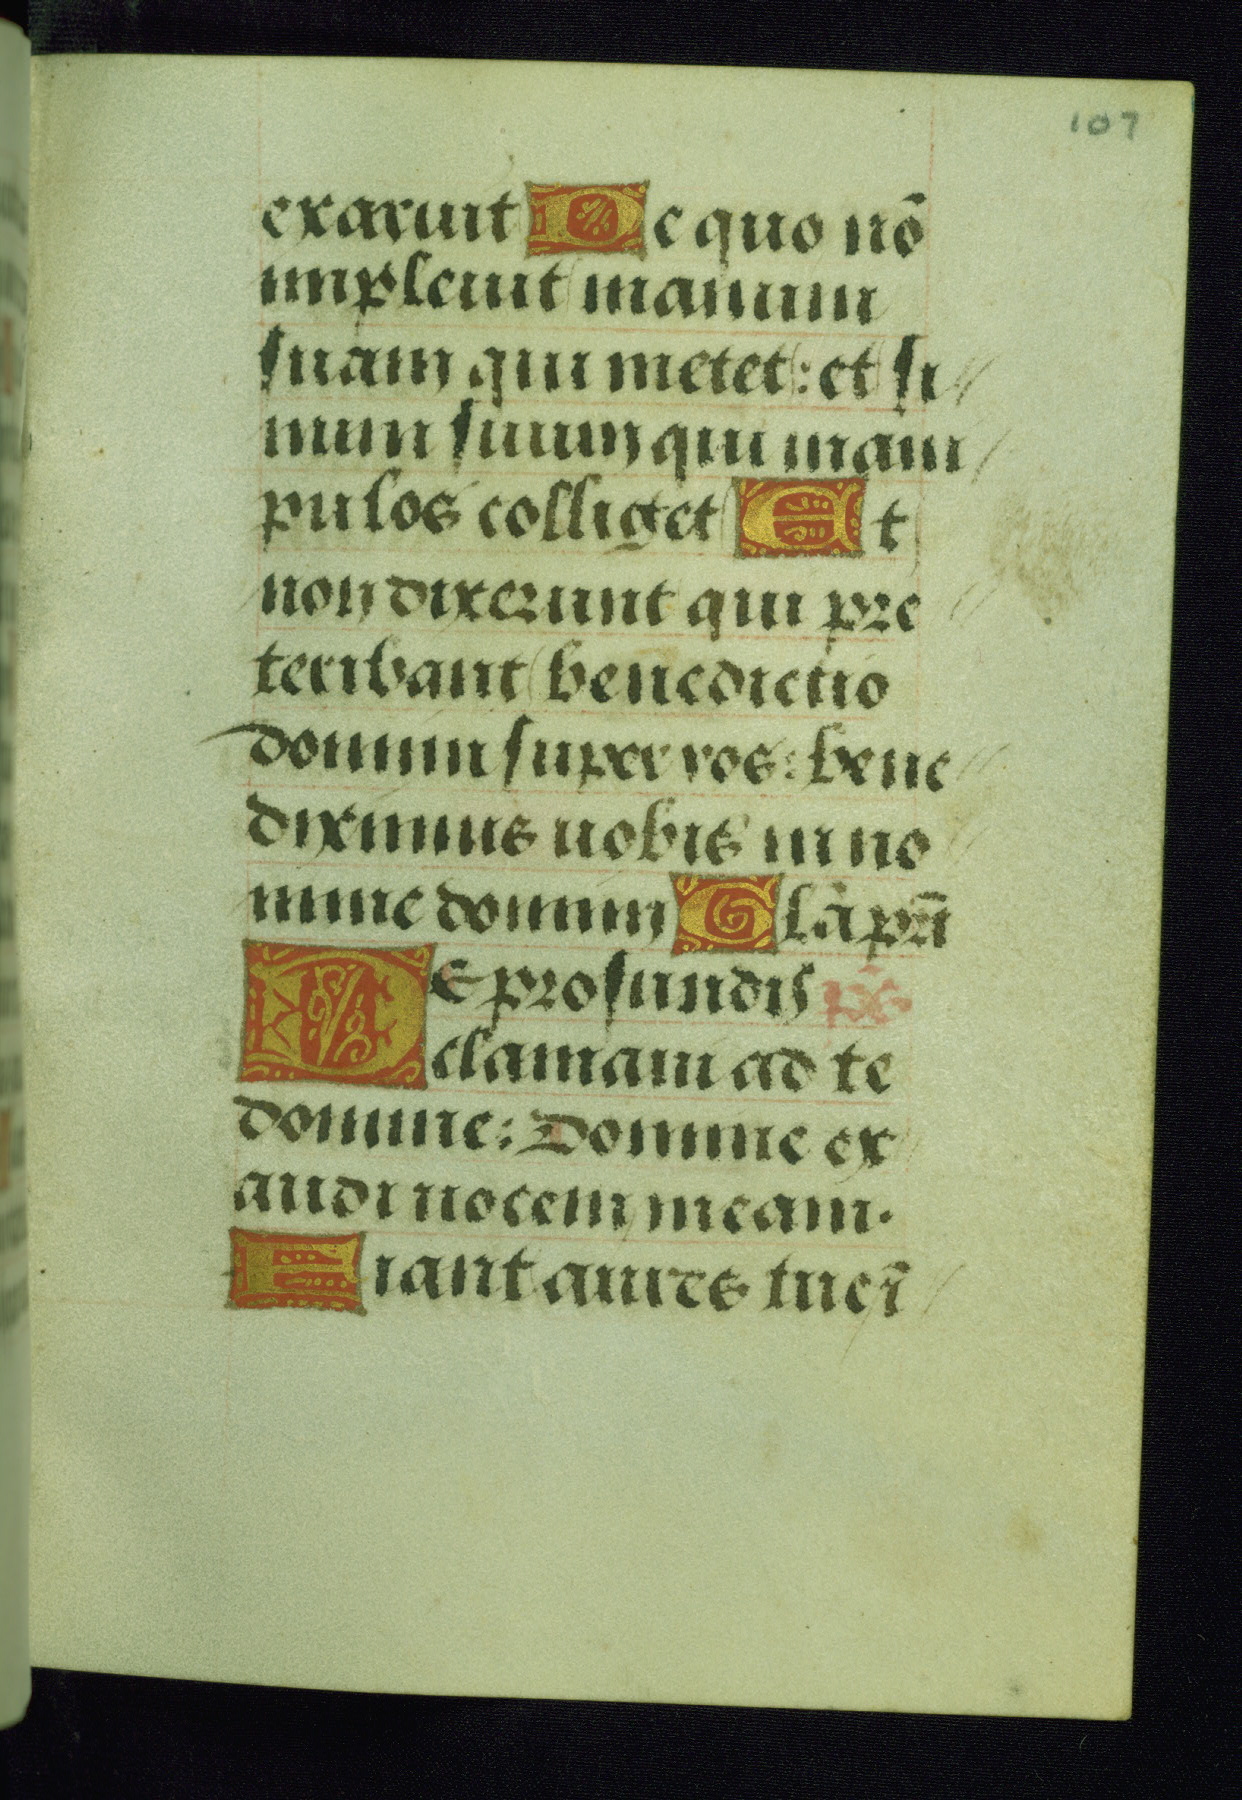 107
exaruit De quo nō
impleuit manum
suam qui metet: et si
num suum qui mani
pulos colliget Et
non dixerunt qui pre
teribant benedictio
domini super vos: bene
diximus uobis in no
mine domini Glā pr̄i
De profundis ps̄
clamaui ad te
domine: Domine ex
audi uocem meam.
Fiant aures tue ī